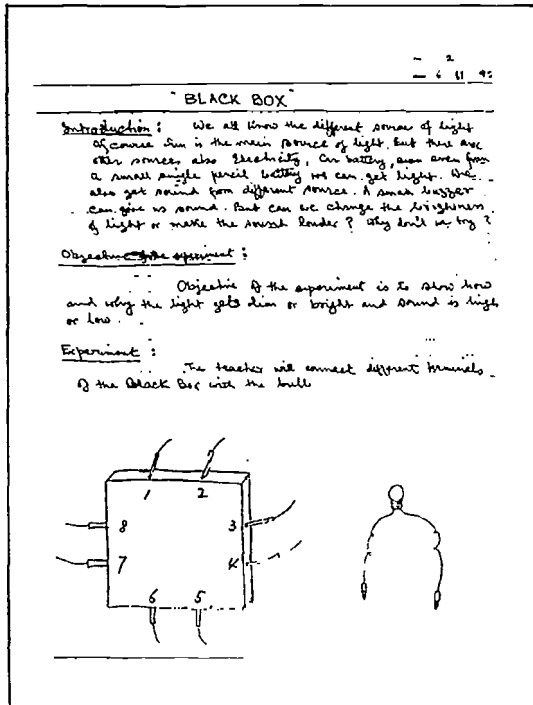 2
6 11 95
"BLACK BOX"
Introduction : We all know the different source of light
Of course Sun is the main source of light. But there are
other sources also Electricity, Car battery, even from
a small single pencil battery we can get light. We
also get sound from different source. A small buzzer
can give us sound. But can we change the brightness
of light or make the sound louder ? Why don't we try ?
Objective of the experiment :
Objective of the experiment is to show how
and why the light gets dim or bright and sound is high
or low.
Experiment :
The teacher will connect different terminals
of the Black Box with the bulb
1 2
8 3
7 4
6 5